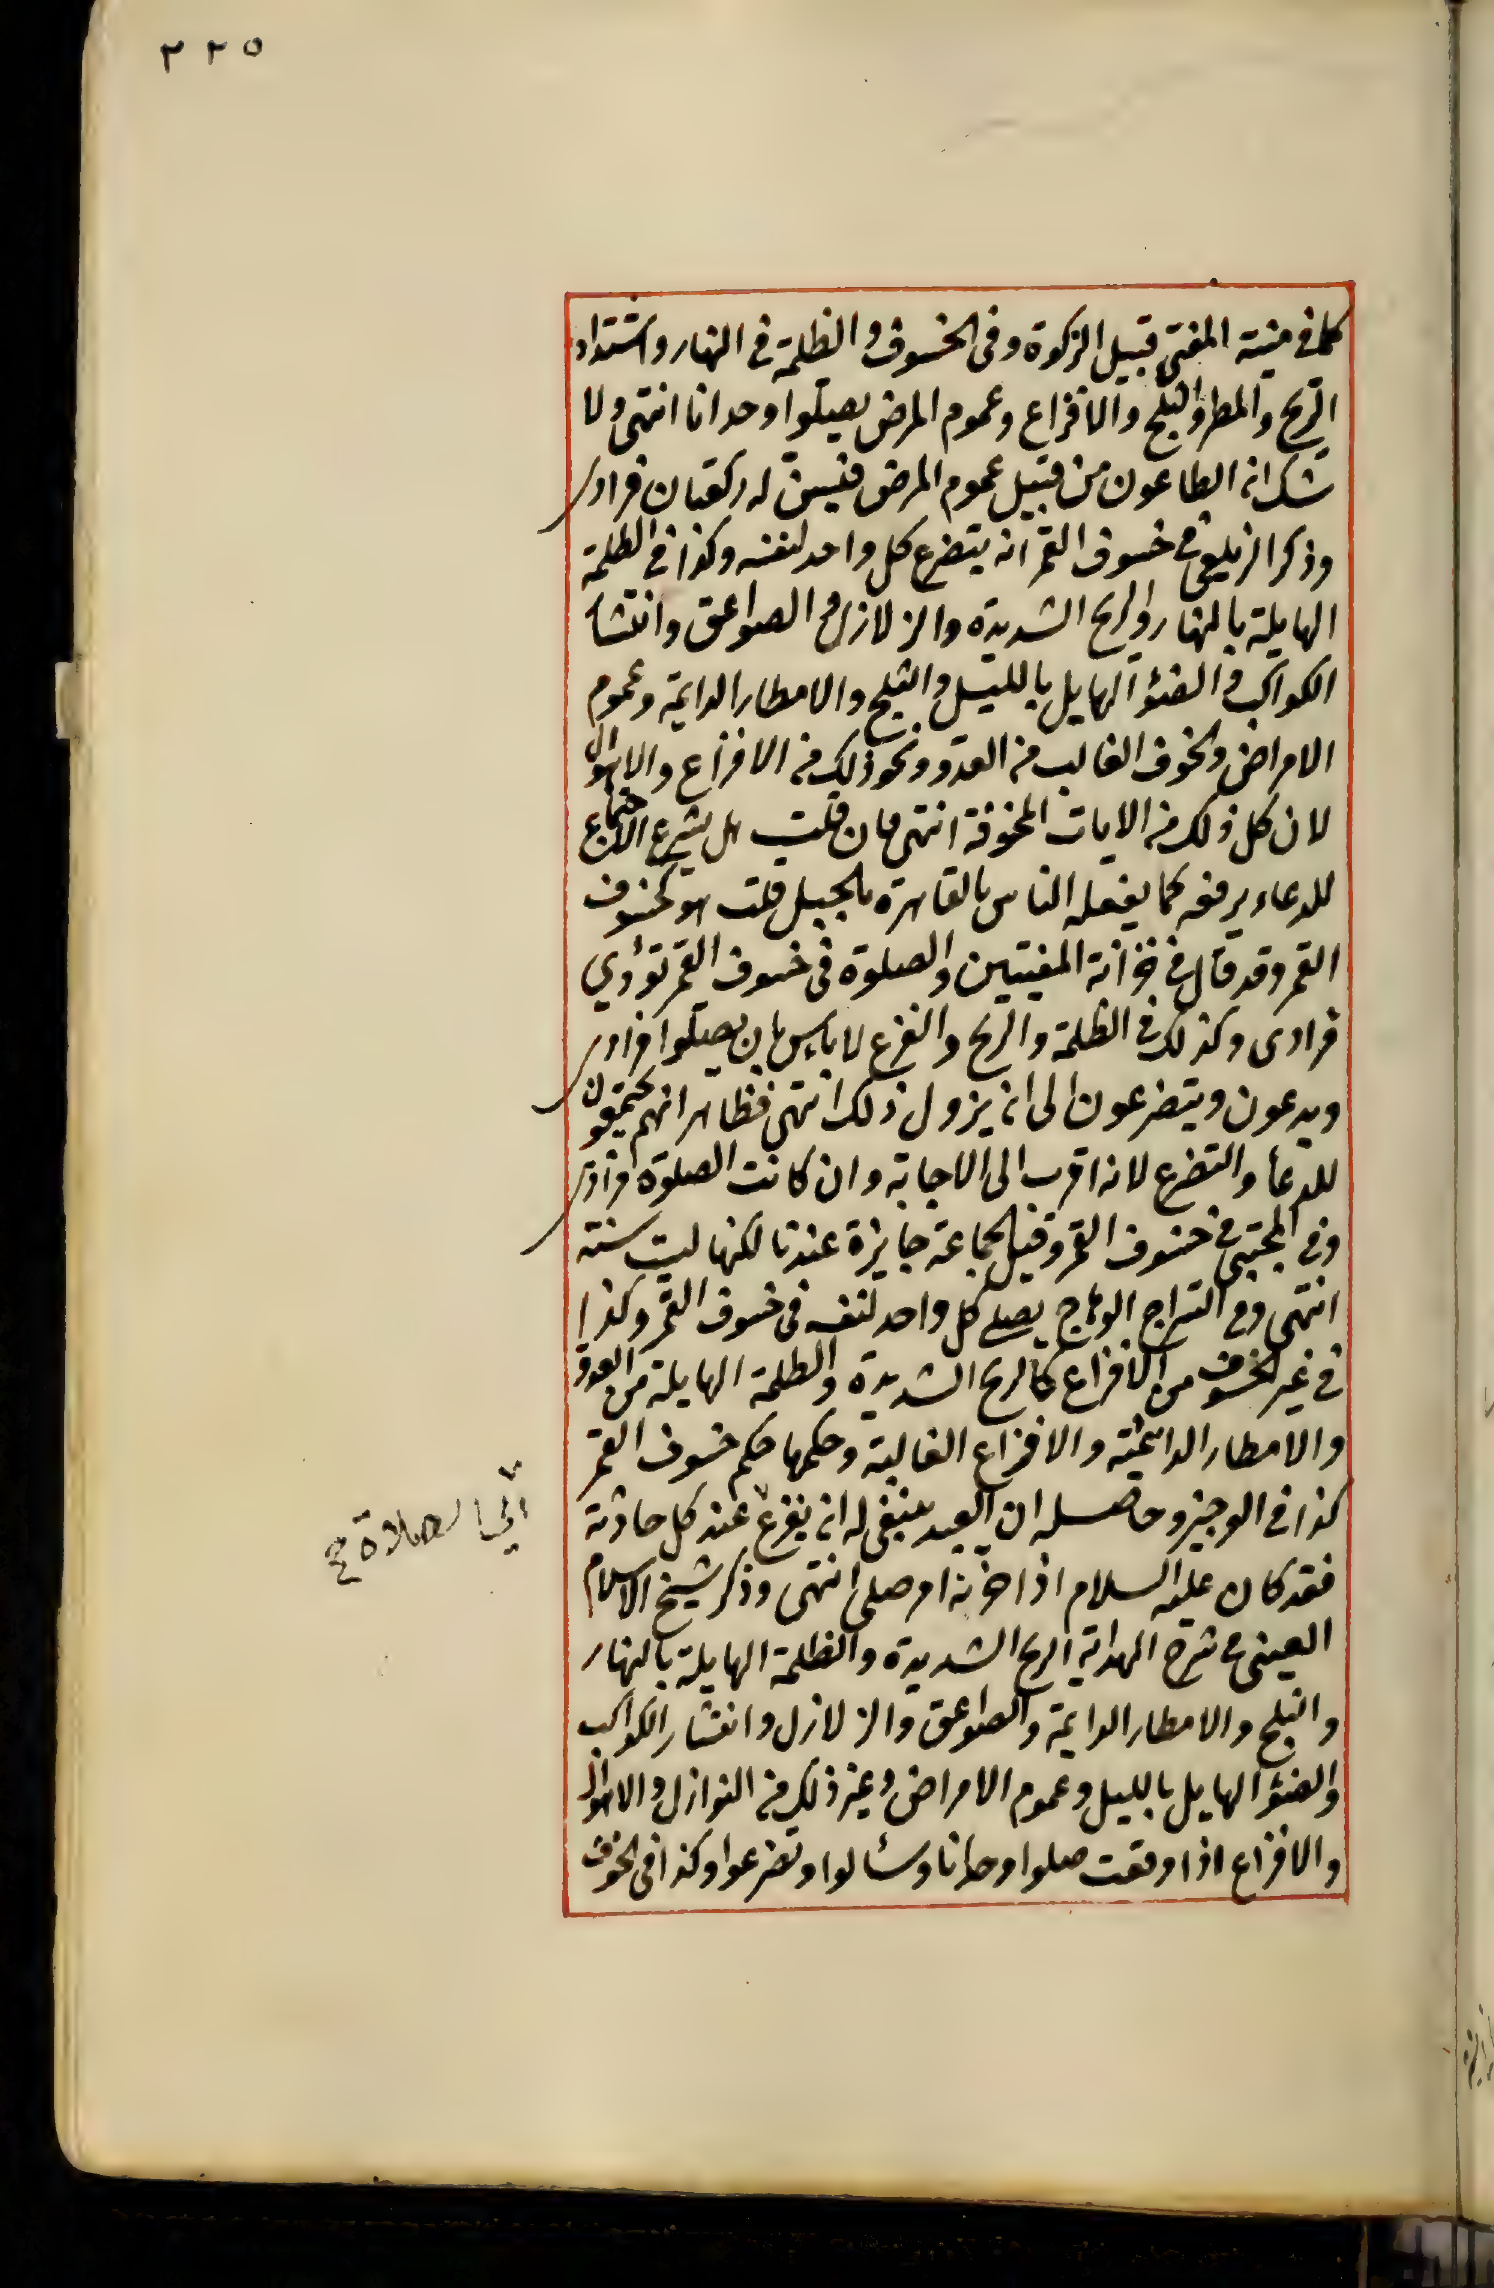 ٢٢٥
كما في منية المفتي قبيل الزكوة وفي الخسوف والظلمة في النهار واشتداد
الريح والمطر والثلج والافزاع وعموم المرض يصلوا وحدانا انتهى ولا
شك ان الطاعون من قبيل عموم المرض فتسن له ركعتان فرادى
وذكر الزيلعي في خسوف القمر انه يتضرع كل واحد لنفسه وكذا في الظلمة
الهايلة بالنهار والريح الشديدة والزلازل والصواعق وانتشار
الكواكب والضئو الهايل بالليل والثلج والامطار الدايمة وعموم
الامراض والخوف الغالب من العدو ونحو ذلك من الافزاع والاهوال
لان كل ذلك من الايات المخوفة انتهى فان قلت هل يشرع الاجتماع
للدعاء برفعه كما يفعله الناس بالقاهرة بالجبل قلت هو كخسوف
القمر وقد قال في خزانة المفتيين والصلوة في خسوف القمر تؤدي
فرادى وكذلك في الظلمة والريح والفزع لا باس بان يصلوا فرادى
ويدعون ويتضرعون الى ان يزول ذلك انتهى فظاهر انهم يجتمعون
للدعا والتضرع لانه اقرب الى الاجابة وان كانت الصلوة فرادى
وفي المجتبى في خسوف القمر وقيل الجماعة جايزة عندنا لكنها ليست سنته
انتهى وفي السراج الوهاج يصلي كل واحد لنفسه في خسوف القمر وكذا
في غير الخسوف من الافزاع كالريح الشديدة والظلمة الهايلة من العدو
والامطار الدائمة والافزاع الغالبة وحكمها حكم خسوف القمر
كذا في الوجيز وحاصله ان العبد ينبغي له ان يفزع عند كل حادثة
الى الصلاة صح
فقد كان عليه السلام اذا حزنه امر صلى انتهى وذكر شيخ الاسلام
العيني في شرح الهداية الريح الشديدة والظلمة الهايلة بالنهار
والثلج والامطار الدايمة والصواعق والزلازل وانتشار الكواكب
والضئو الهايل بالليل وعموم الامراض وغير ذلك من النوازل والاهوال
والافزاع اذا وقعت صلوا وحدانا وسئالوا وتضرعوا وكذا في الخوف